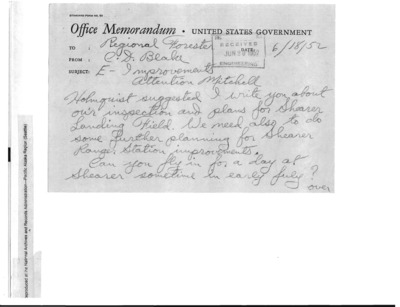 STANDARD FORM NO. 64
Office Memorandum • UNITED STATES GOVERNMENT
TO : Regional Forester DATE: 6/18/52
RECEIVED
JUN 1952
ENGINEERING
FROM : C. S.
SUBJECT: E - Improvements
Attention Mitchell
Holmquist suggested I write you about
our inspection and plans for Shearer
Landing Field. We need also to do
some further planning for Shearer
Range Station improvements.
Can you fly in for a day at
Shearer sometime in early July?
over
Reproduced at the National Archives and Records Administration—Pacific Alaska Region (Seattle)